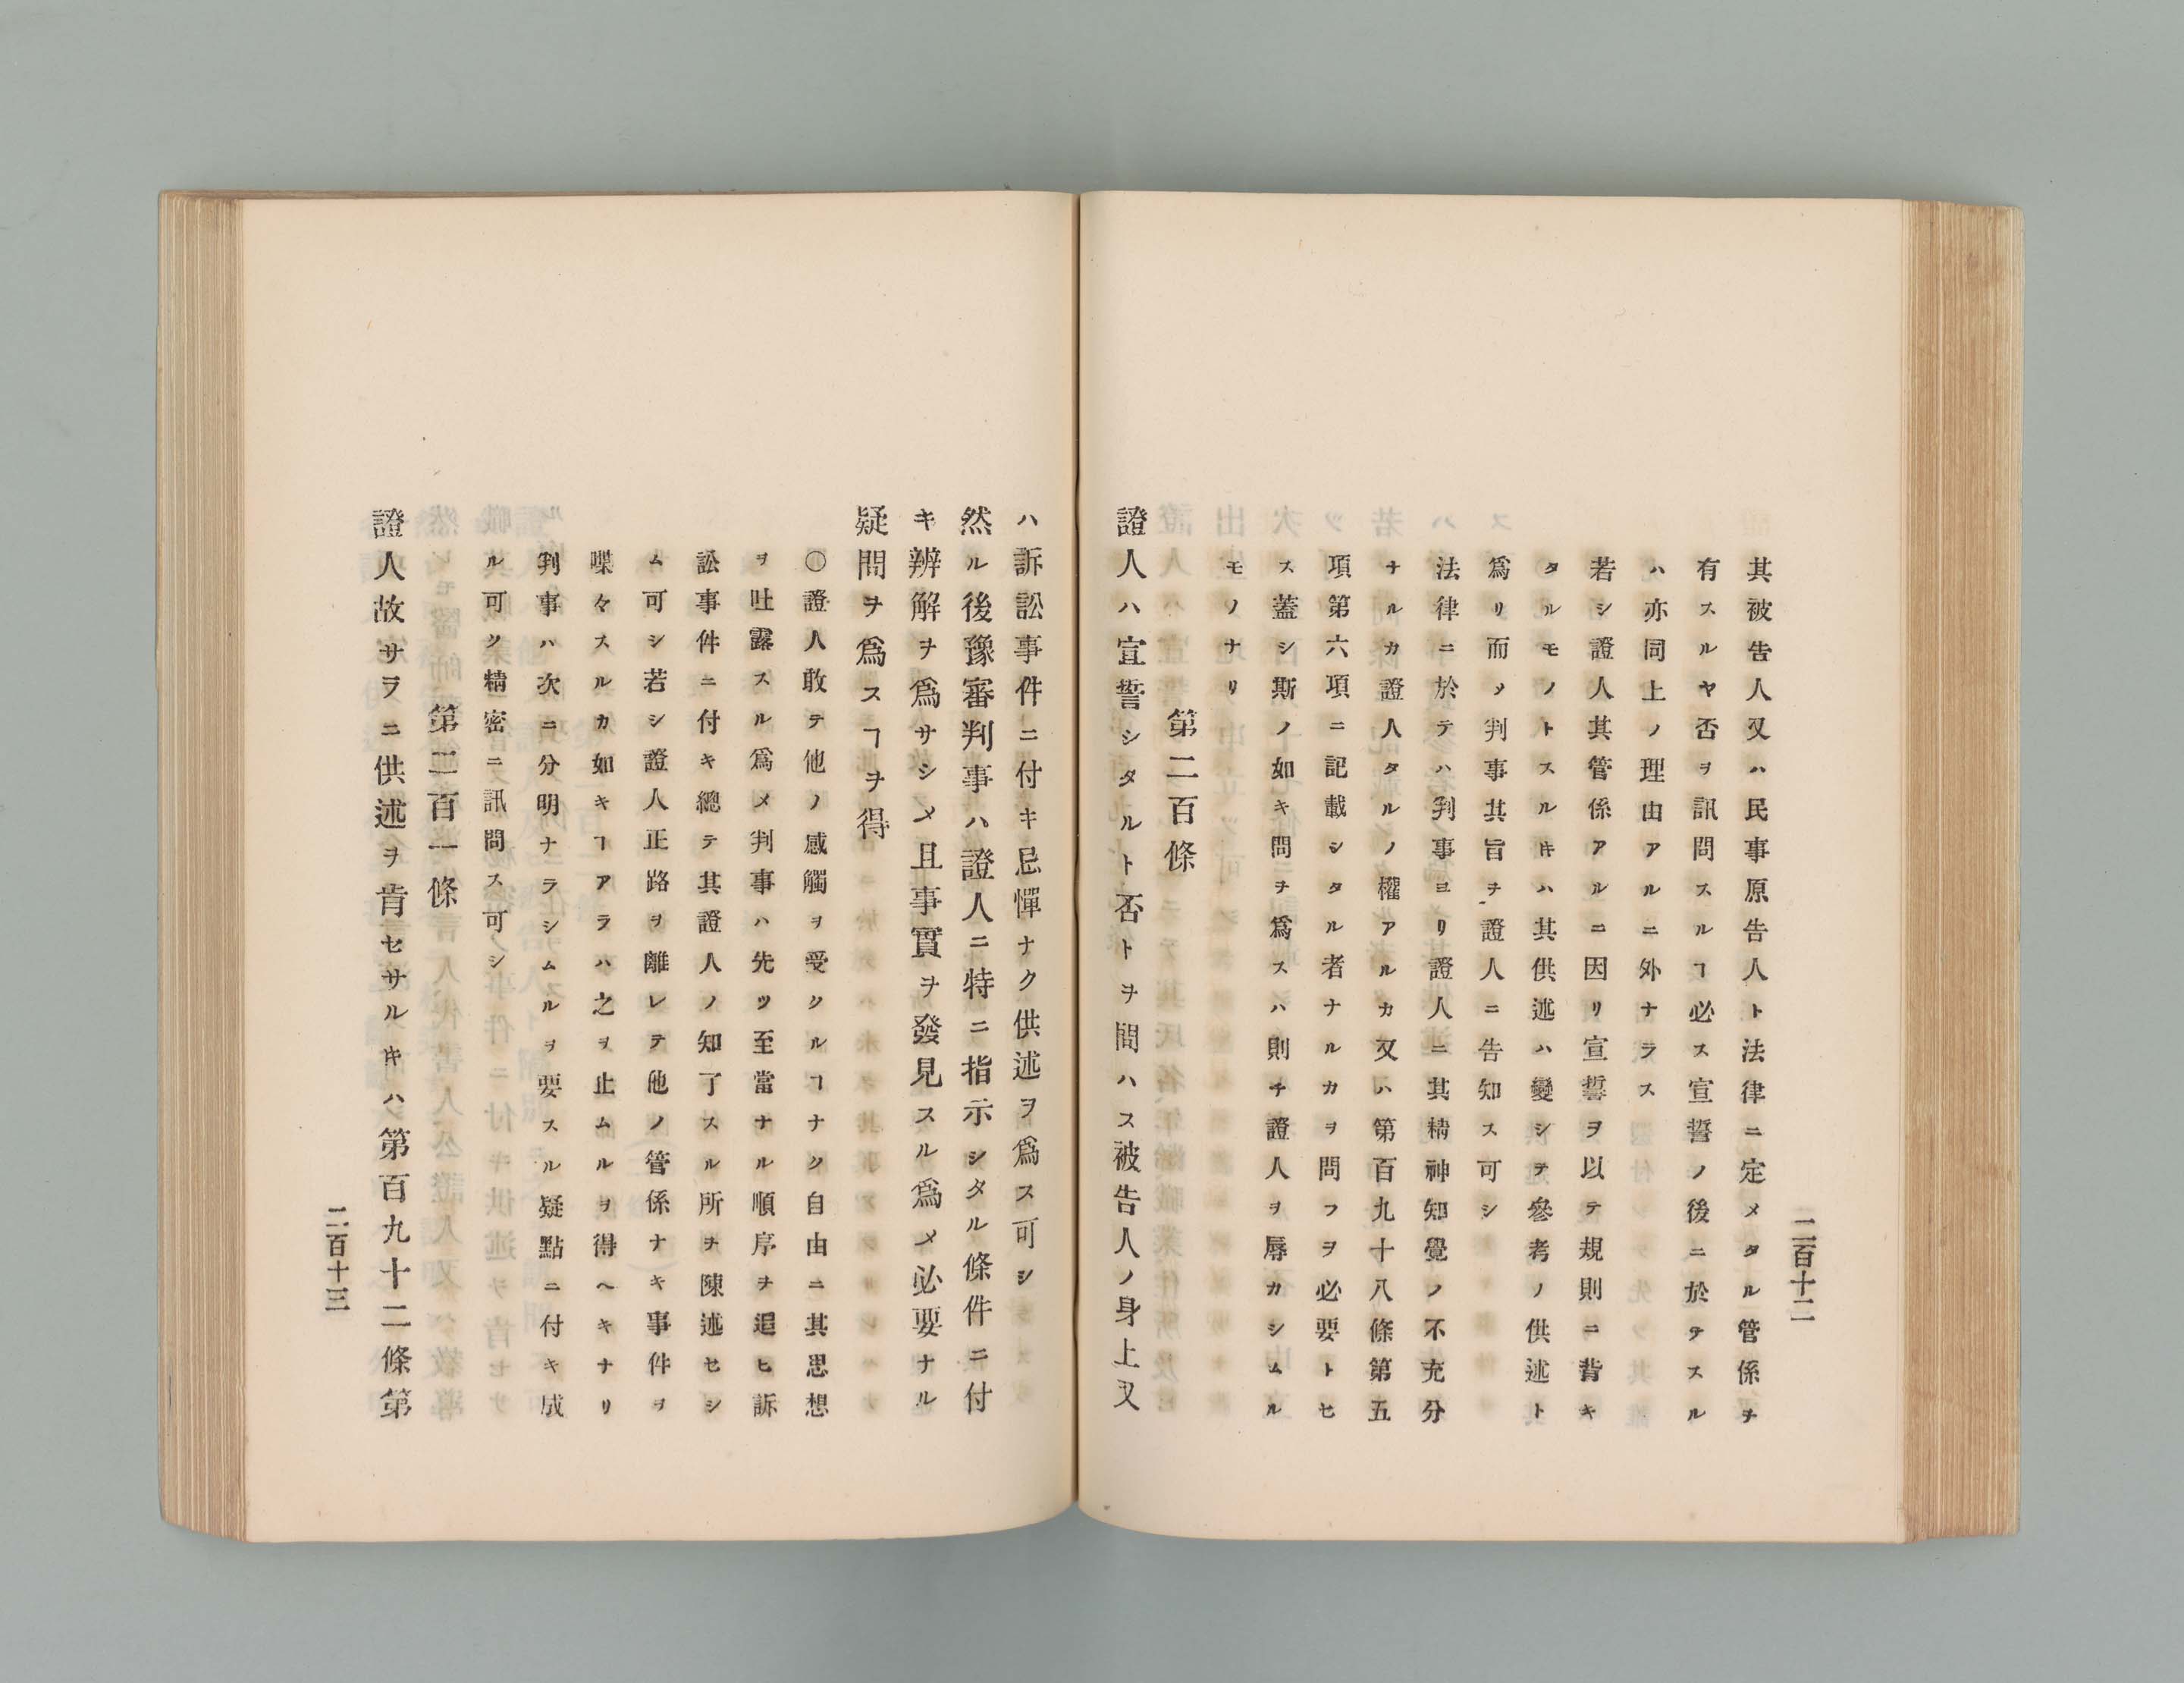 二百十二
其被告人又ハ民事原告人ト法律ニ定メタル管係ヲ
有スルヤ否ヲ訊問スルヿ必ス宣誓ノ後ニ於テスル
ハ亦同上ノ理由アルニ外ナラス
若シ證人其管係アルニ因リ宣誓ヲ以テ規則ニ背キ
タルモノトスル𪜈ハ其供述ハ變シテ參考ノ供述ト
爲リ而ノ判事其旨ヲ證人ニ告知ス可シ
法律ニ於テハ判事ヨリ證人ニ其精神知覺ノ不充分
ナルカ證人タルノ權アルカ又ハ第百九十八條第五
項第六項ニ記載シタル者ナルカヲ問フヲ必要トセ
ス蓋シ斯ノ如キ問ヲ爲スハ則チ證人ヲ辱カシムル
モノナリ
第二百條
證人ハ宣誓シタルト否トヲ問ハス被告人ノ身上又
ハ訴訟事件ニ付キ忌憚ナク供述ヲ爲ス可シ
然ル後豫審判事ハ證人ニ特ニ指示シタル條件ニ付
キ辨解ヲ爲サシメ且事實ヲ發見スル爲メ必要ナル
疑問ヲ爲スヿヲ得
〇證人敢テ他ノ感觸ヲ受クルヿナク自由ニ其思想
ヲ吐露スル爲メ判事ハ先ツ至當ナル順序ヲ追ヒ訴
訟事件ニ付キ總テ其證人ノ知了スル所ヲ陳述セシ
ム可シ若シ證人正路ヲ離レテ他ノ管係ナキ事件ヲ
喋々スルカ如キヿアラハ之ヲ止ムルヲ得ヘキナリ
判事ハ次ニ分明ナラシムルヲ要スル疑點ニ付キ成
ル可ク精密ニ訊問ス可シ
第二百一條
證人故サラニ供述ヲ肯セサルキハ第百九十二條第
二百十三